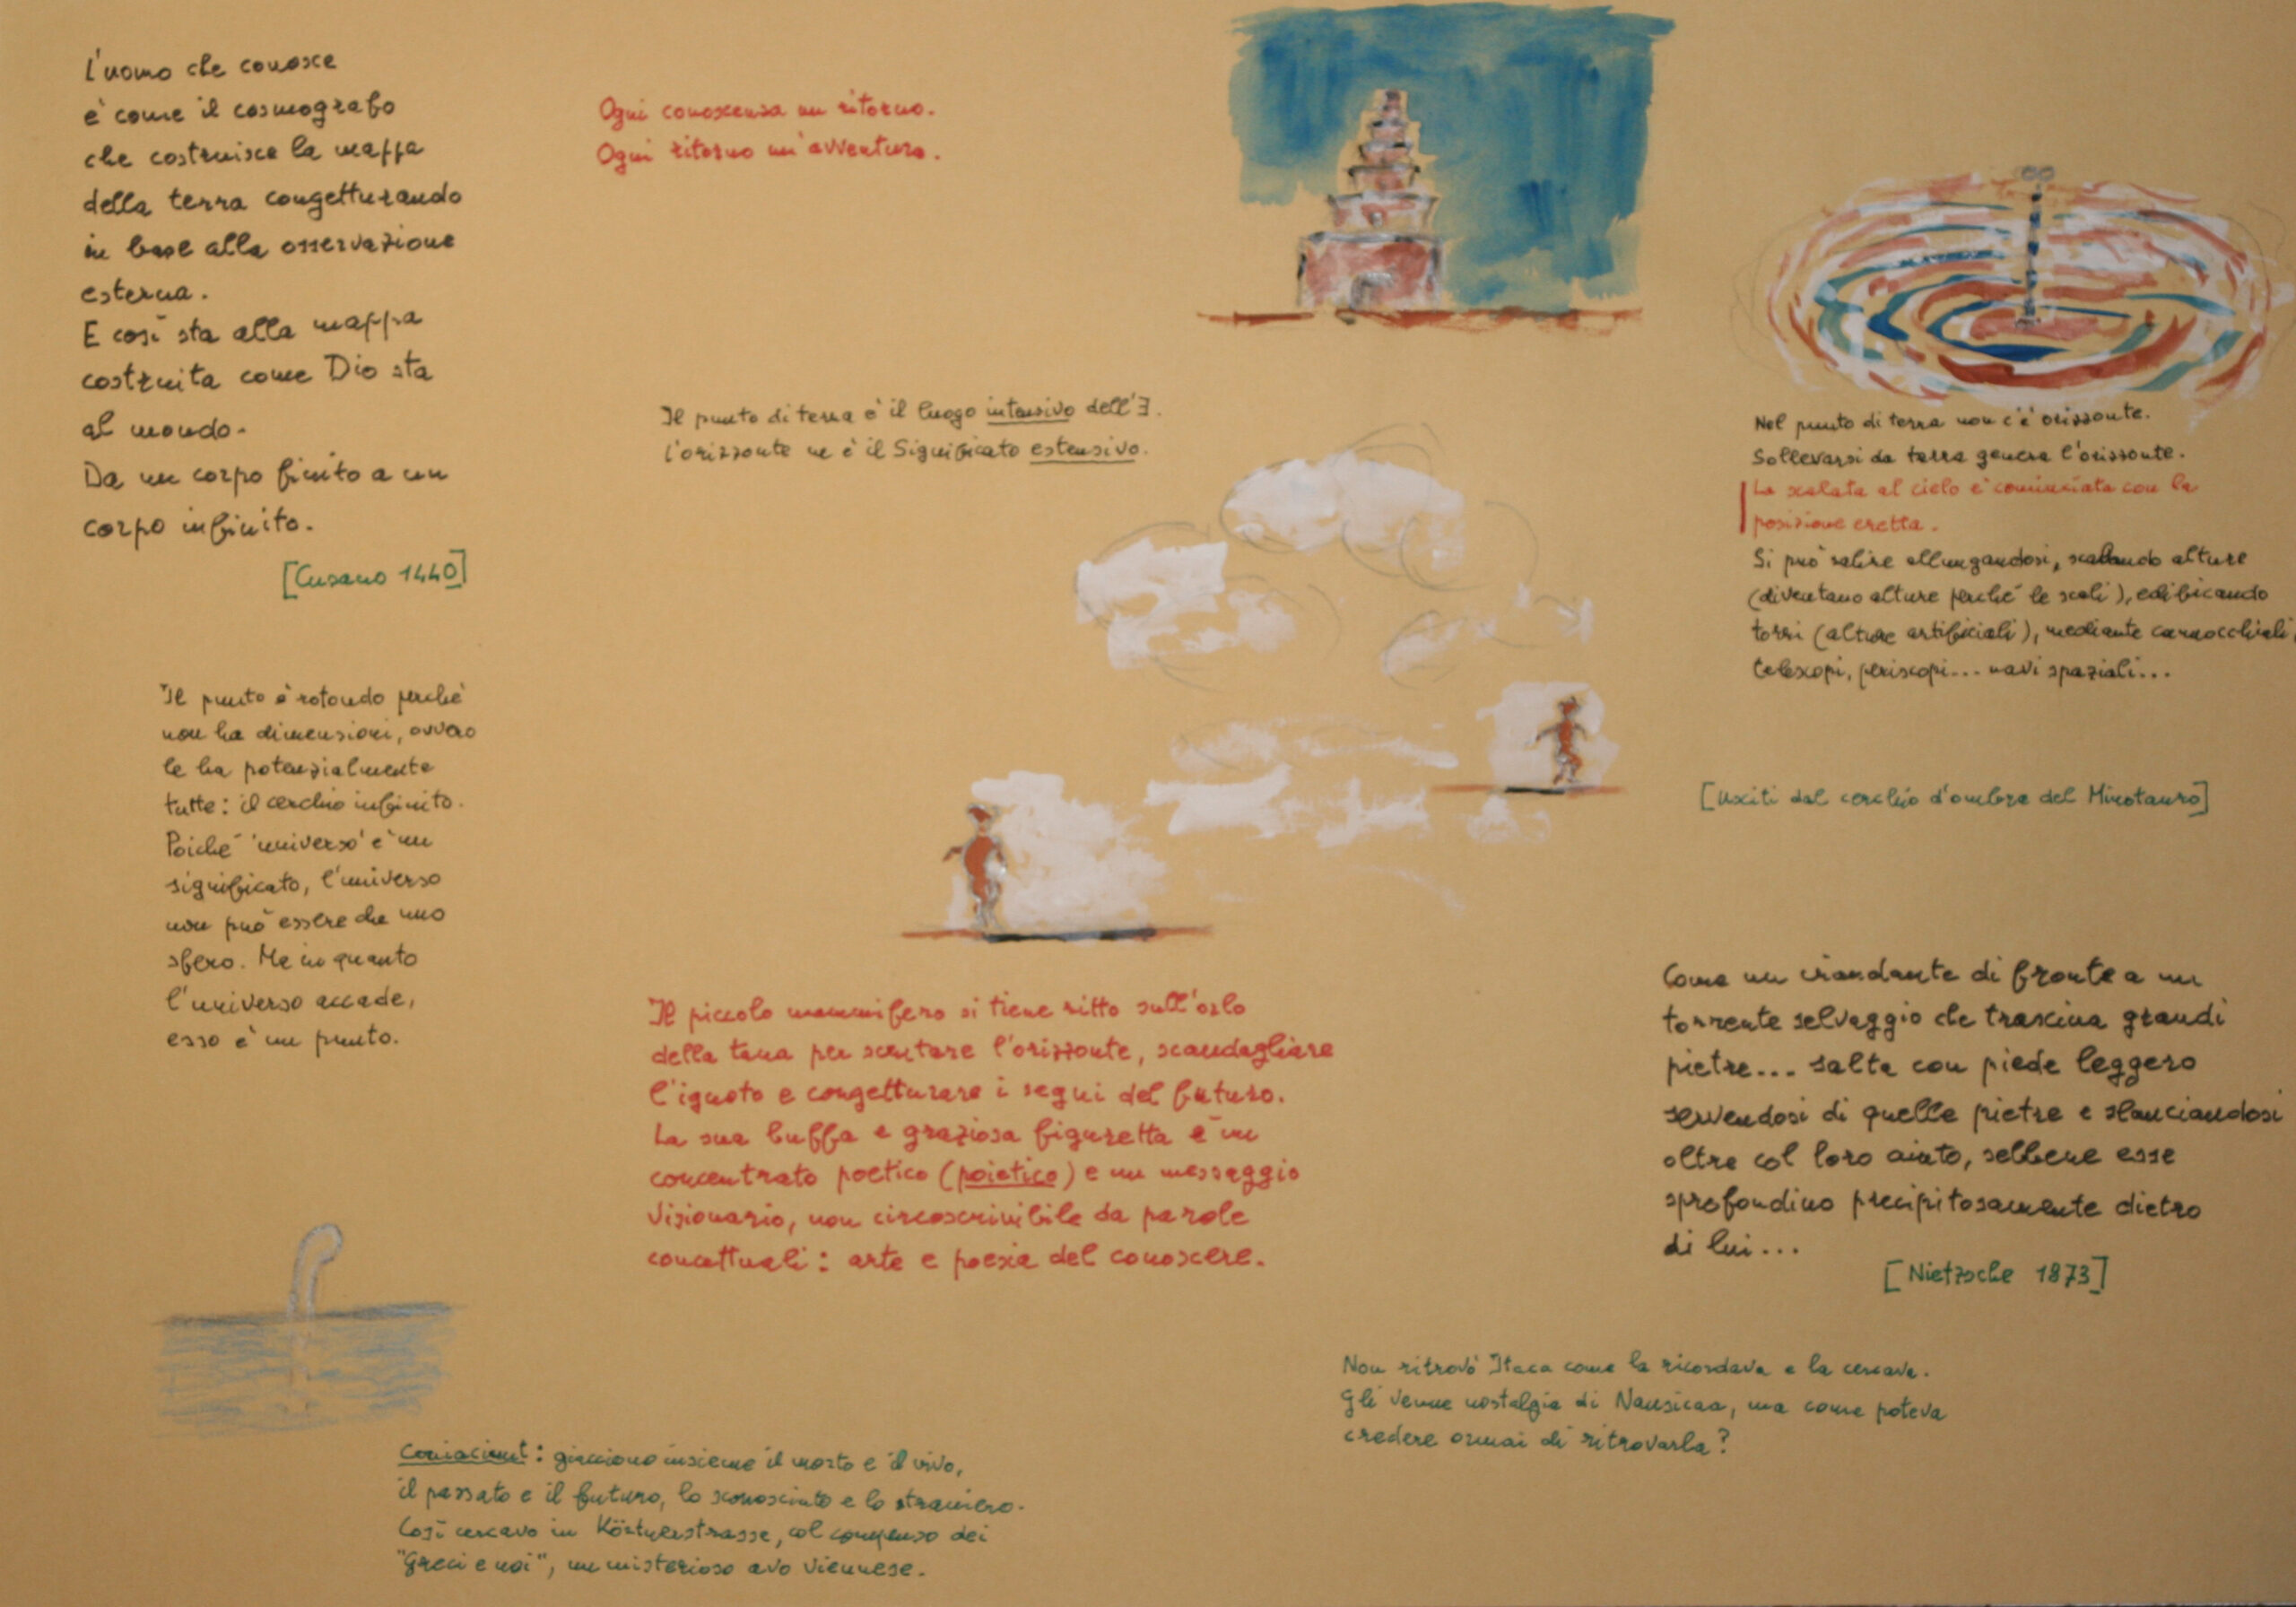 L'uomo che conosce
è come il cosmografo
che costruisce la mappa
della terra congetturando
in base alla osservazione
esterna.
E così sta alla mappa
costruita come Dio sta
al mondo.
Da un corpo finito a un
corpo infinito.
[Cusano 1440]
Il punto è rotondo perché
non ha dimensioni, ovvero
le ha potenzialmente
tutte: il cerchio infinito.
Poiché 'universo' è un
significato, l'universo
non può essere che uno
sfero. Ma in quanto
l'universo accade,
esso è un punto.
Ogni conoscenza un ritorno.
Ogni ritorno un'avventura.
Il punto di terra è il luogo intensivo dell'∃.
L'orizzonte ne è il Significato estensivo.
Il piccolo mammifero si tiene ritto sull'orlo
della tana per scrutare l'orizzonte, scandagliare
l'ignoto e congetturare i segni del futuro.
La sua buffa e graziosa figuretta è un
concentrato poetico (poietico) e un messaggio
visionario, non circoscrivibile da parole
concettuali: arte e poesia del conoscere.
Coniaciunt: giacciono insieme il morto e il vivo,
il passato e il futuro, lo sconosciuto e lo straniero.
Così cercavo in Körtnerstrasse, col compenso dei
"Greci e noi", un misterioso avo viennese.
Nel punto di terra non c'è orizzonte.
Sollevarsi da terra genera l'orizzonte.
La scalata al cielo è cominciata con la
posizione eretta.
Si può salire allungandosi, scalando alture
(diventano alture perché le scali), edificando
torri (alture artificiali), mediante cannocchiali,
telescopi, periscopi... navi spaziali...
[Usciti dal cerchio d'ombra del Minotauro]
Come un viandante di fronte a un
torrente selvaggio che trascina grandi
pietre... salta con piede leggero
servendosi di quelle pietre e slanciandosi
oltre col loro aiuto, sebbene esse
sprofondino precipitosamente dietro
di lui...
[Nietzsche 1873]
Non ritrovò Itaca come la ricordava e la cercava.
Gli venne nostalgia di Nausicaa, ma come poteva
credere ormai di ritrovarla?